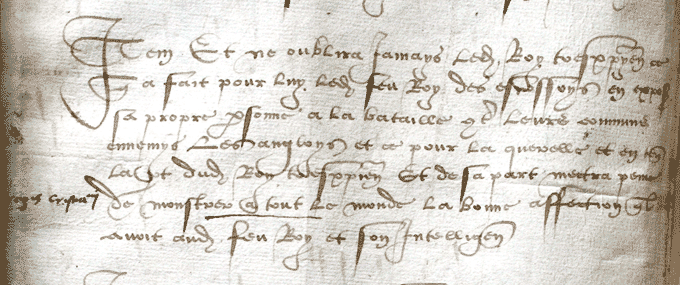 Item Et ne oublira Jamays Led. Roy tresxpien ce
q a fait pour luy led. feu Roy des escossoys en expo
sa propre psonne a la bataille contre leurs communs
ennemys Les angloys et ce pour la querelle et en
dud. Roy tresxpien Et de sa part mectra peine
de monstrer a tout Le monde La bonne affection ql
Avoit aud. feu Roy et son Intelligen